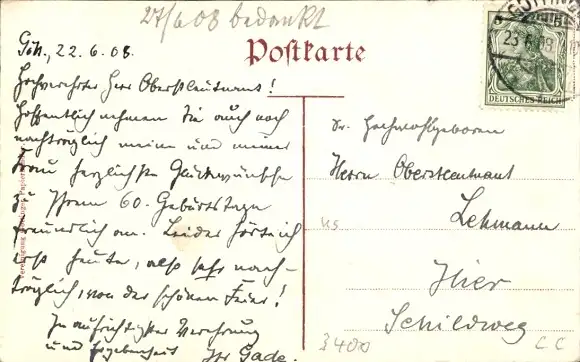 27/6 08 bedankt
Postkarte
Gött., 22.6.08.
Hochverehrter Herr Oberstleutnant!
Hoffentlich nehmen Sie auch noch
nachträglich meine und meiner
Frau herzlichste Glückwünsche
zu Ihrem 60. Geburtstage
freundlich an. Leider hörte ich
erst heute, also sehr nach-
träglich, von der schönen Feier!
In aufrichtigster Verehrung
und Ergebenheit Ihr Gade.
DEUTSCHES REICH
23.6.08
Sr. Hochwohlgeboren
Herrn Oberstleutnant
Lehmann
Hier
Schildweg
3400
CC